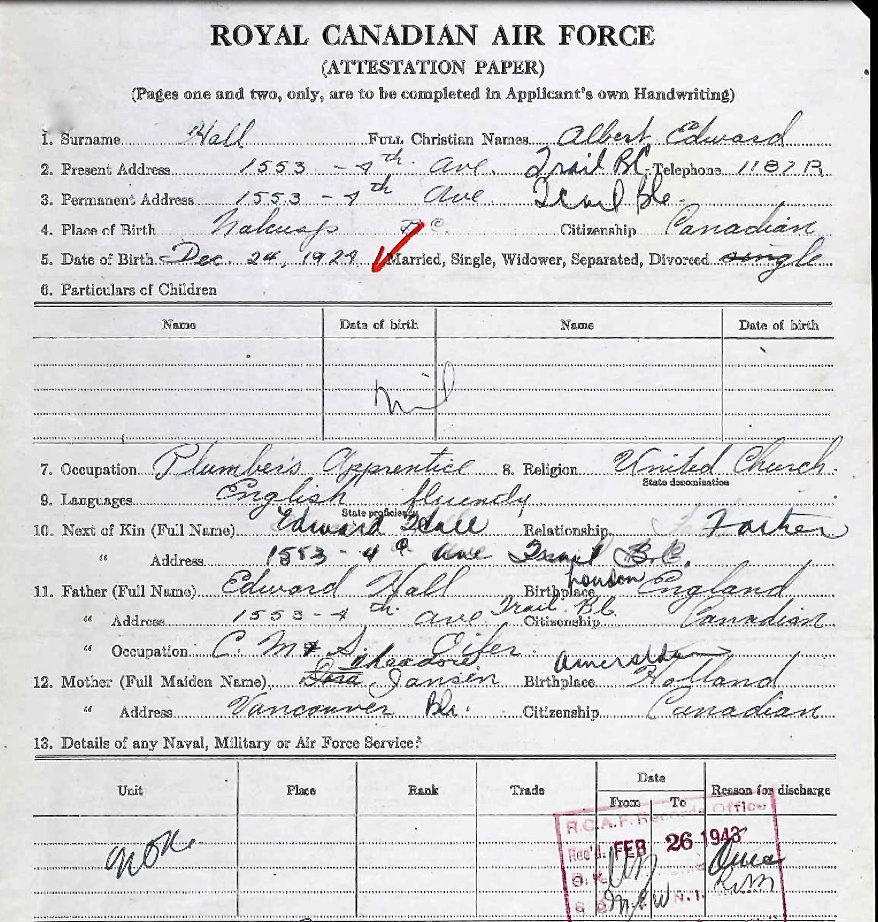 ROYAL CANADIAN AIR FORCE
(ATTESTATION PAPER)
(Pages one and two, only, are to be completed in Applicant's own Handwriting)
1. Surname Hall Full Christian Names Albert Edward
2. Present Address 1553 - 4th Ave. Trail BC. Telephone 1187R
3. Permanent Address 1553 - 4th Ave Trail Bc.
4. Place of Birth Nakusp B.C. Citizenship Canadian
5. Date of Birth Dec. 24, 1924 Married, Single, Widower, Separated, Divorced single
6. Particulars of Children
Name Date of birth Name Date of birth
nil
7. Occupation Plumber's Apprentice 8. Religion United Church.
State denomination
9. Languages English fluently
State proficiency
10. Next of Kin (Full Name) Edward Hall Relationship Father
" Address 1553 - 4th ave Trail B.C.
11. Father (Full Name) Edward Hall Birthplace London England
" Address 1553 - 4th. ave Trail Bc. Citizenship Canadian
" Occupation C. M & S.
Theodore
12. Mother (Full Maiden Name) Dora Jansen Birthplace Holland
" Address Vancouver Bc. Citizenship Canadian
13. Details of any Naval, Military or Air Force Service?
Unit Place Rank Trade Date Reason for discharge
From To
R.C.A.F. Records Office
none
Rec'd. FEB 26 1943